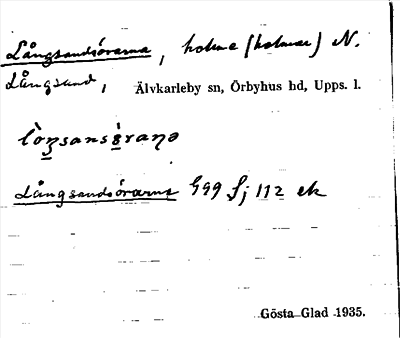 Långsandsörarna, holme (holmar) N.
Långsand, Älvkarleby sn, Örbyhus hd, Upps. l.
lòŋsansö̀raṇə
Långsandsörarne G99 Sj 112 ek
Gösta Glad 1935.